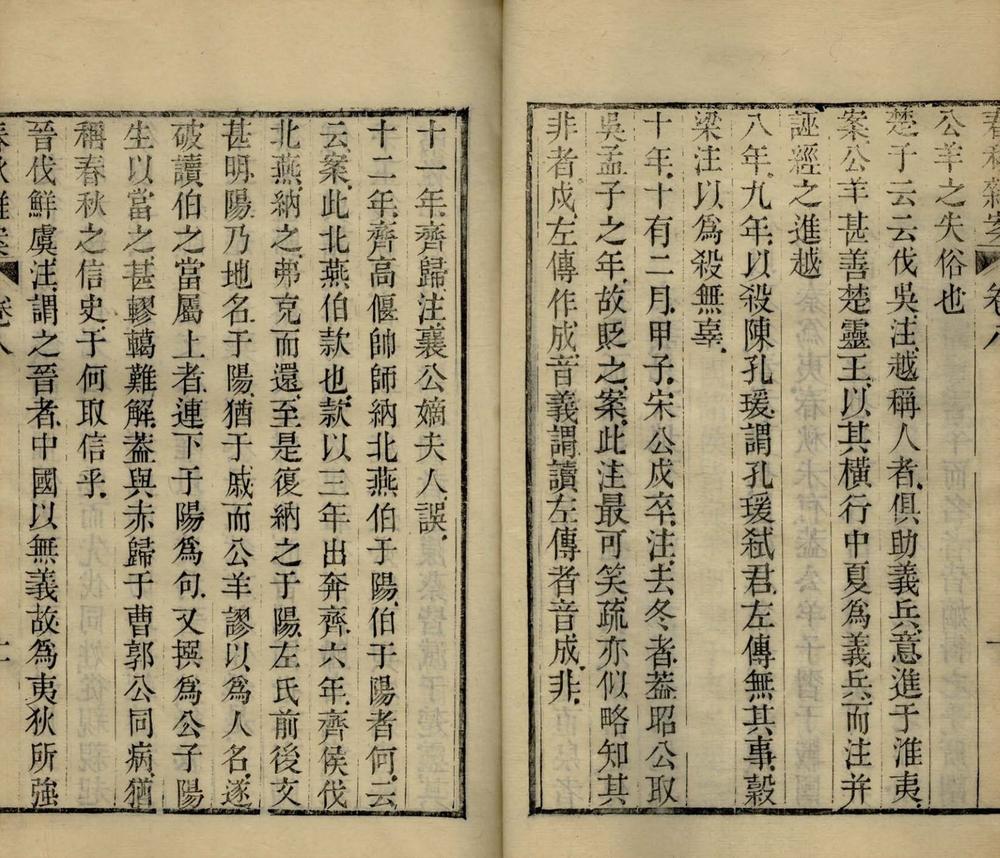 春秋雜案 卷八
公羊之失俗也
楚子云云伐吳注越稱人者俱助義兵意進于淮夷
案公羊甚善楚靈王以其橫行中夏為義兵而注并
誣經之進越
八年九年以殺陳孔瑗謂孔瑗弒君左傳無其事穀
梁注以為殺無辜
十年十有二月甲子宋公戍卒注去冬者蓋昭公取
吳孟子之年故貶之案此注最可笑疏亦似略知其
非者戍左傳作成音義謂讀左傳者音成非
十一年齊歸注襄公嫡夫人誤
十二年齊高偃帥師納北燕伯于陽伯于陽者何云
云案此北燕伯款也款以三年出奔齊六年齊侯伐
北燕納之弗克而還至是復納之于陽左氏前後文
甚明陽乃地名于陽猶于戚而公羊謬以為人名遂
破讀伯之當屬上者連下于陽為句又撰為公子陽
生以當之甚轇轕難解蓋與赤歸于曹郭公同病猶
稱春秋之信史于何取信乎
晉伐鮮虞注謂之晉者中國以無義故為夷狄所強
春秋雜案 卷八